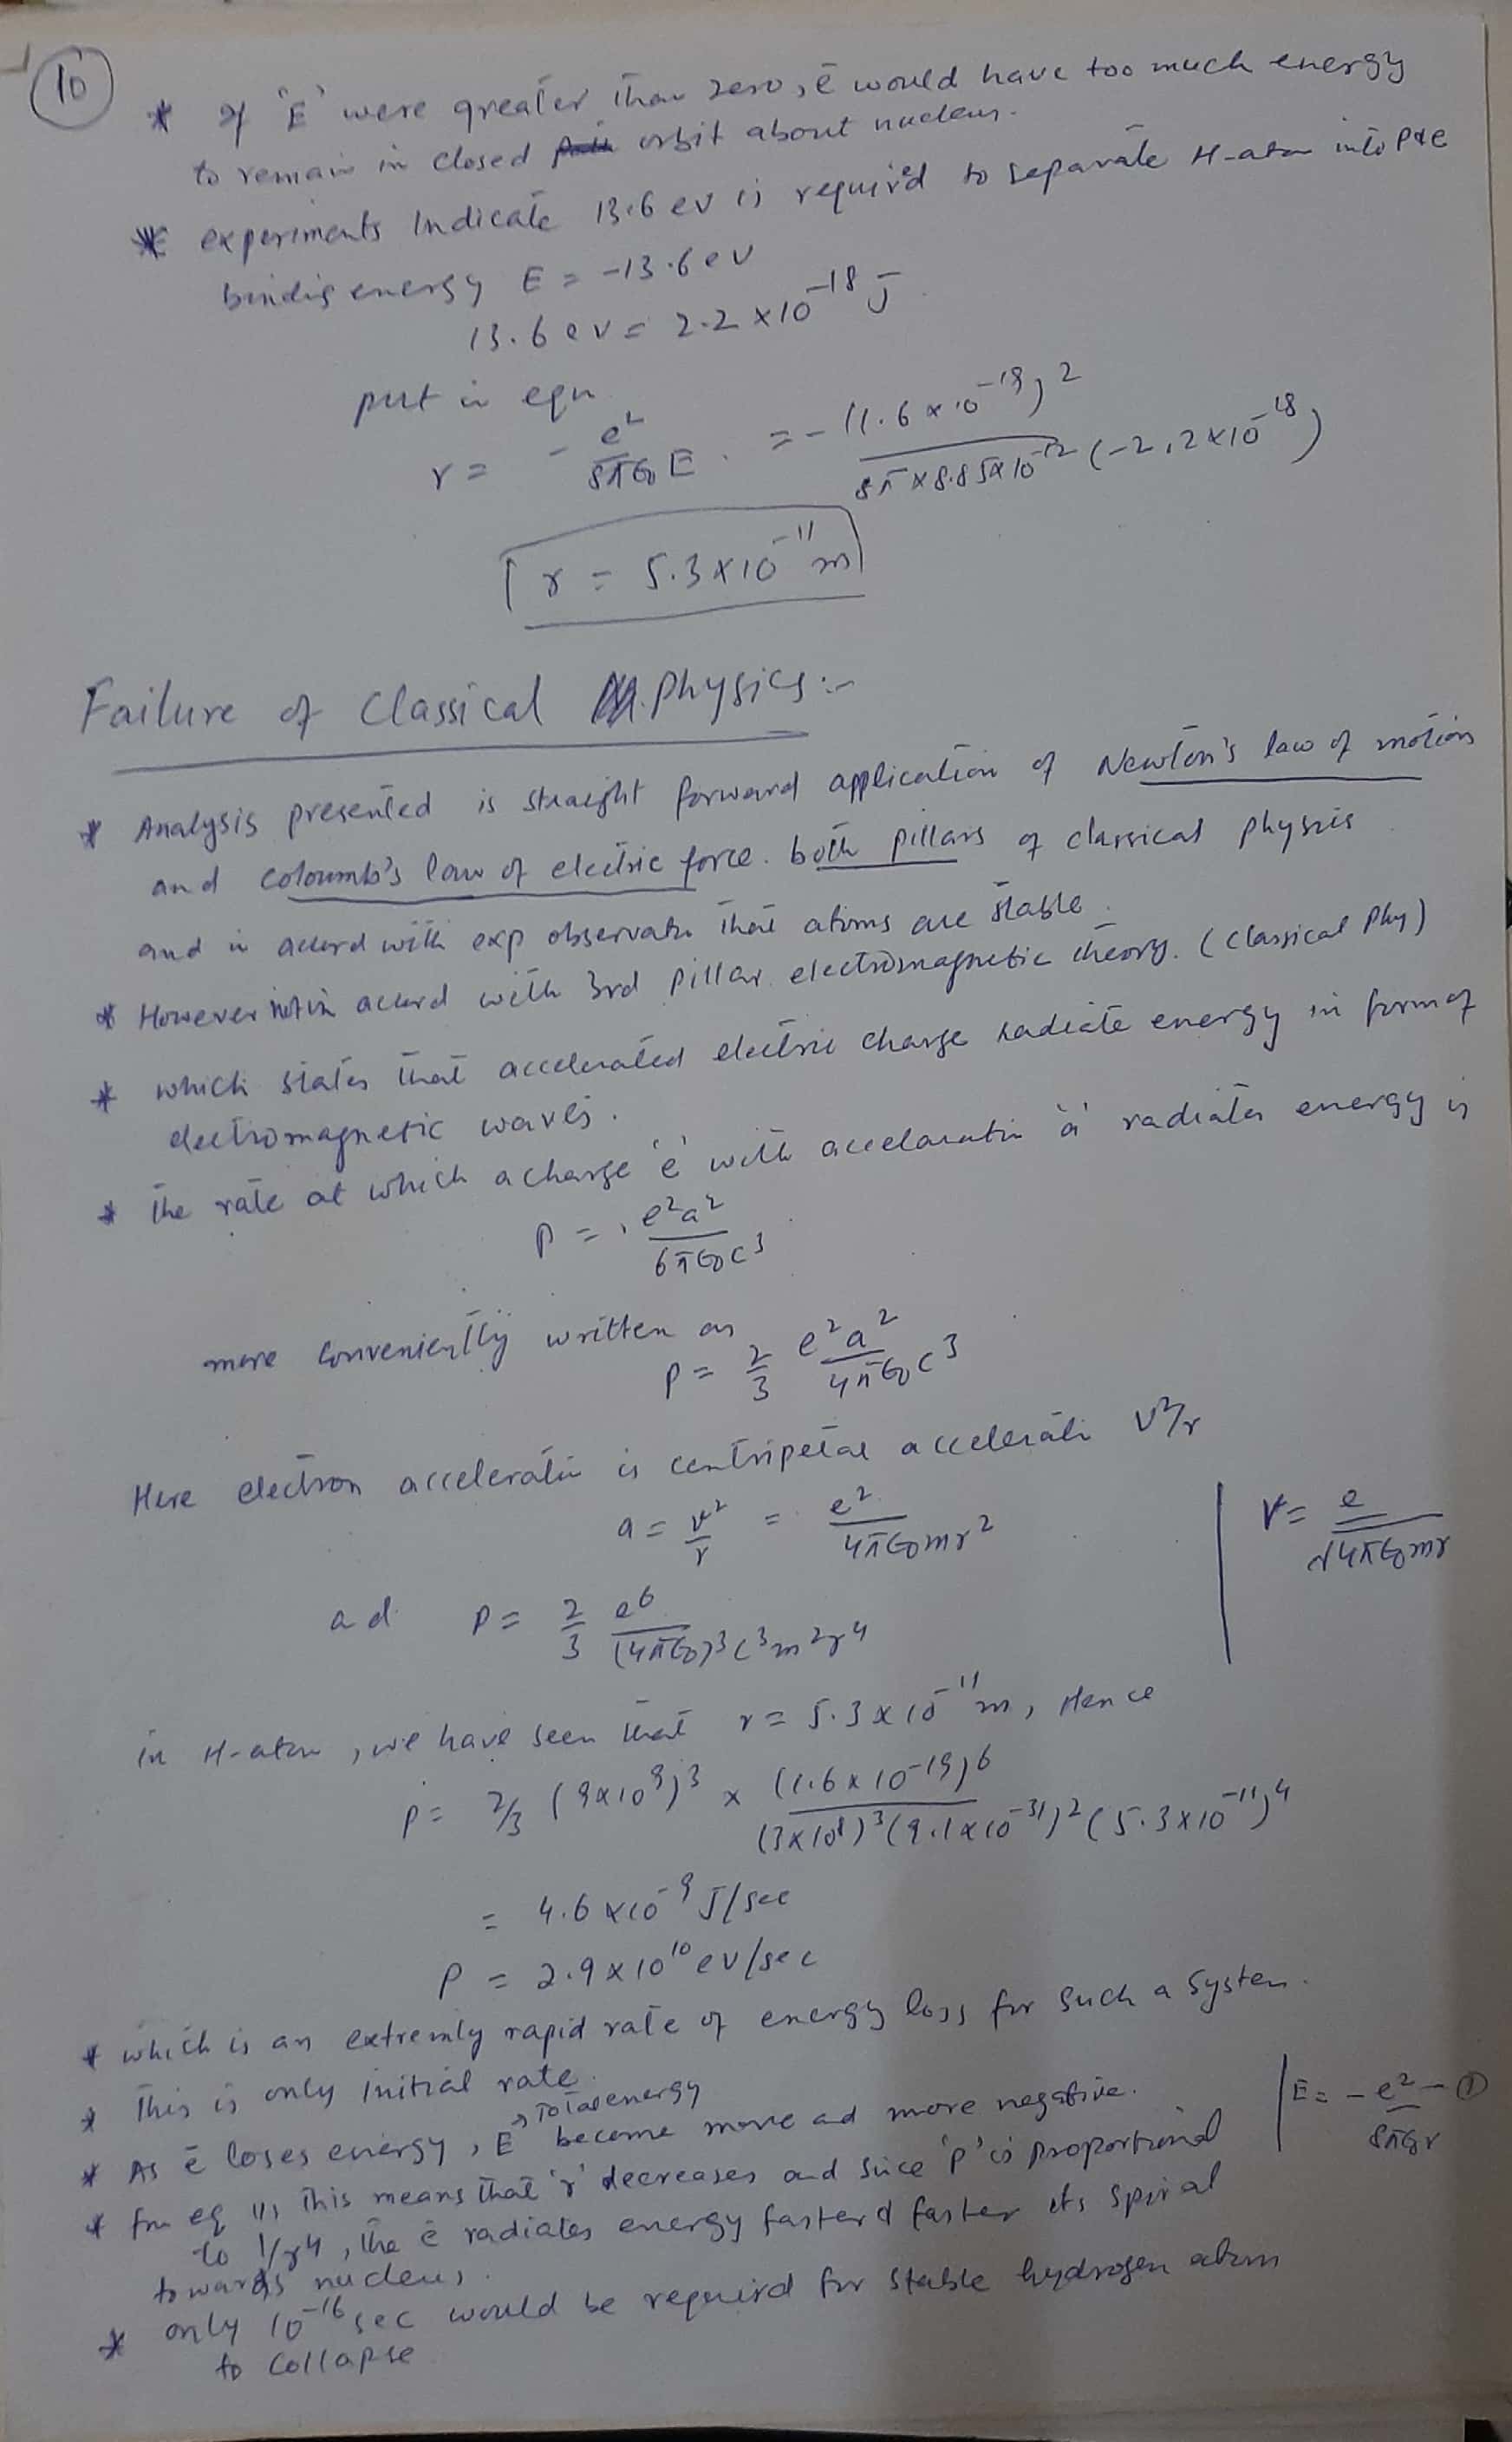 10
* If 'E' were greater than zero, ē would have too much energy
to remain in closed orbit about nucleus.
* experiments Indicate 13.6 ev is requir'd to separate H-atom into P & e
binding energy E = -13.6 ev
13.6 ev = 2.2 × 10⁻¹⁸ J.
put in eqn
r = - e²/8πε₀E = - (1.6 × 10⁻¹⁹)²/8π × 8.85 × 10⁻¹² (-2.2 × 10⁻¹⁸)
r = 5.3 × 10⁻¹¹ m
Failure of Classical Physics :-
* Analysis presented is straight forward application of Newton's law of motion
and coloumb's law of electric force. both pillars of classical physics
and in accord with exp observatn that atoms are stable.
* However not in accord with 3rd pillar electromagnetic theory. (Classical Phy)
* which states that accelerated electric charge radiate energy in form of
electromagnetic waves.
* The rate at which a charge 'e' with accelaratin 'a' radiates energy is
P = e²a²/6πε₀c³
more conveniently written as
P = 2/3 e²a²/4πε₀c³
Here electron acceleratin is centripetal accelerati v²/r
a = v²/r = e²/4πε₀mr² | V = e/√4πε₀mr
ad P = 2/3 e⁶/(4πε₀)³c³m²r⁴
in H-atom, we have seen that r = 5.3 × 10⁻¹¹ m, Hence
P = 2/3 (9×10⁹)³ × (1.6 × 10⁻¹⁹)⁶/(3×10⁸)³(9.1×10⁻³¹)²(5.3×10⁻¹¹)⁴
= 4.6 × 10⁻⁹ J/sec
P = 2.9 × 10¹⁰ ev/sec
* which is an extremly rapid rate of energy loss for such a system.
* This is only initial rate.
→ Total energy
* As ē loses energy, 'E' become more ad more negative. | E = - e²/8πε₀r - ①
* frm eq (1), This means that 'r' decreases and since 'p' is proportional
to 1/r⁴, the ē radiates energy faster & faster its spiral
towards nucleus.
* only 10⁻¹⁶ sec would be requird for stable hydrogen atom
to collapse